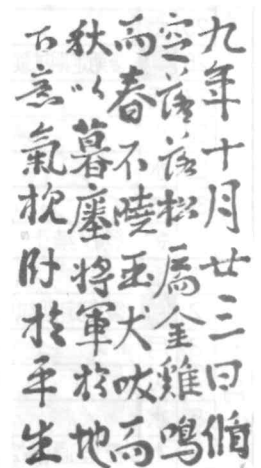 九年十月廿三日脩
落落松扃金雞鳴
而春不曉玉犬吠而
秋以暮塵將軍於地
下意氣附於平生